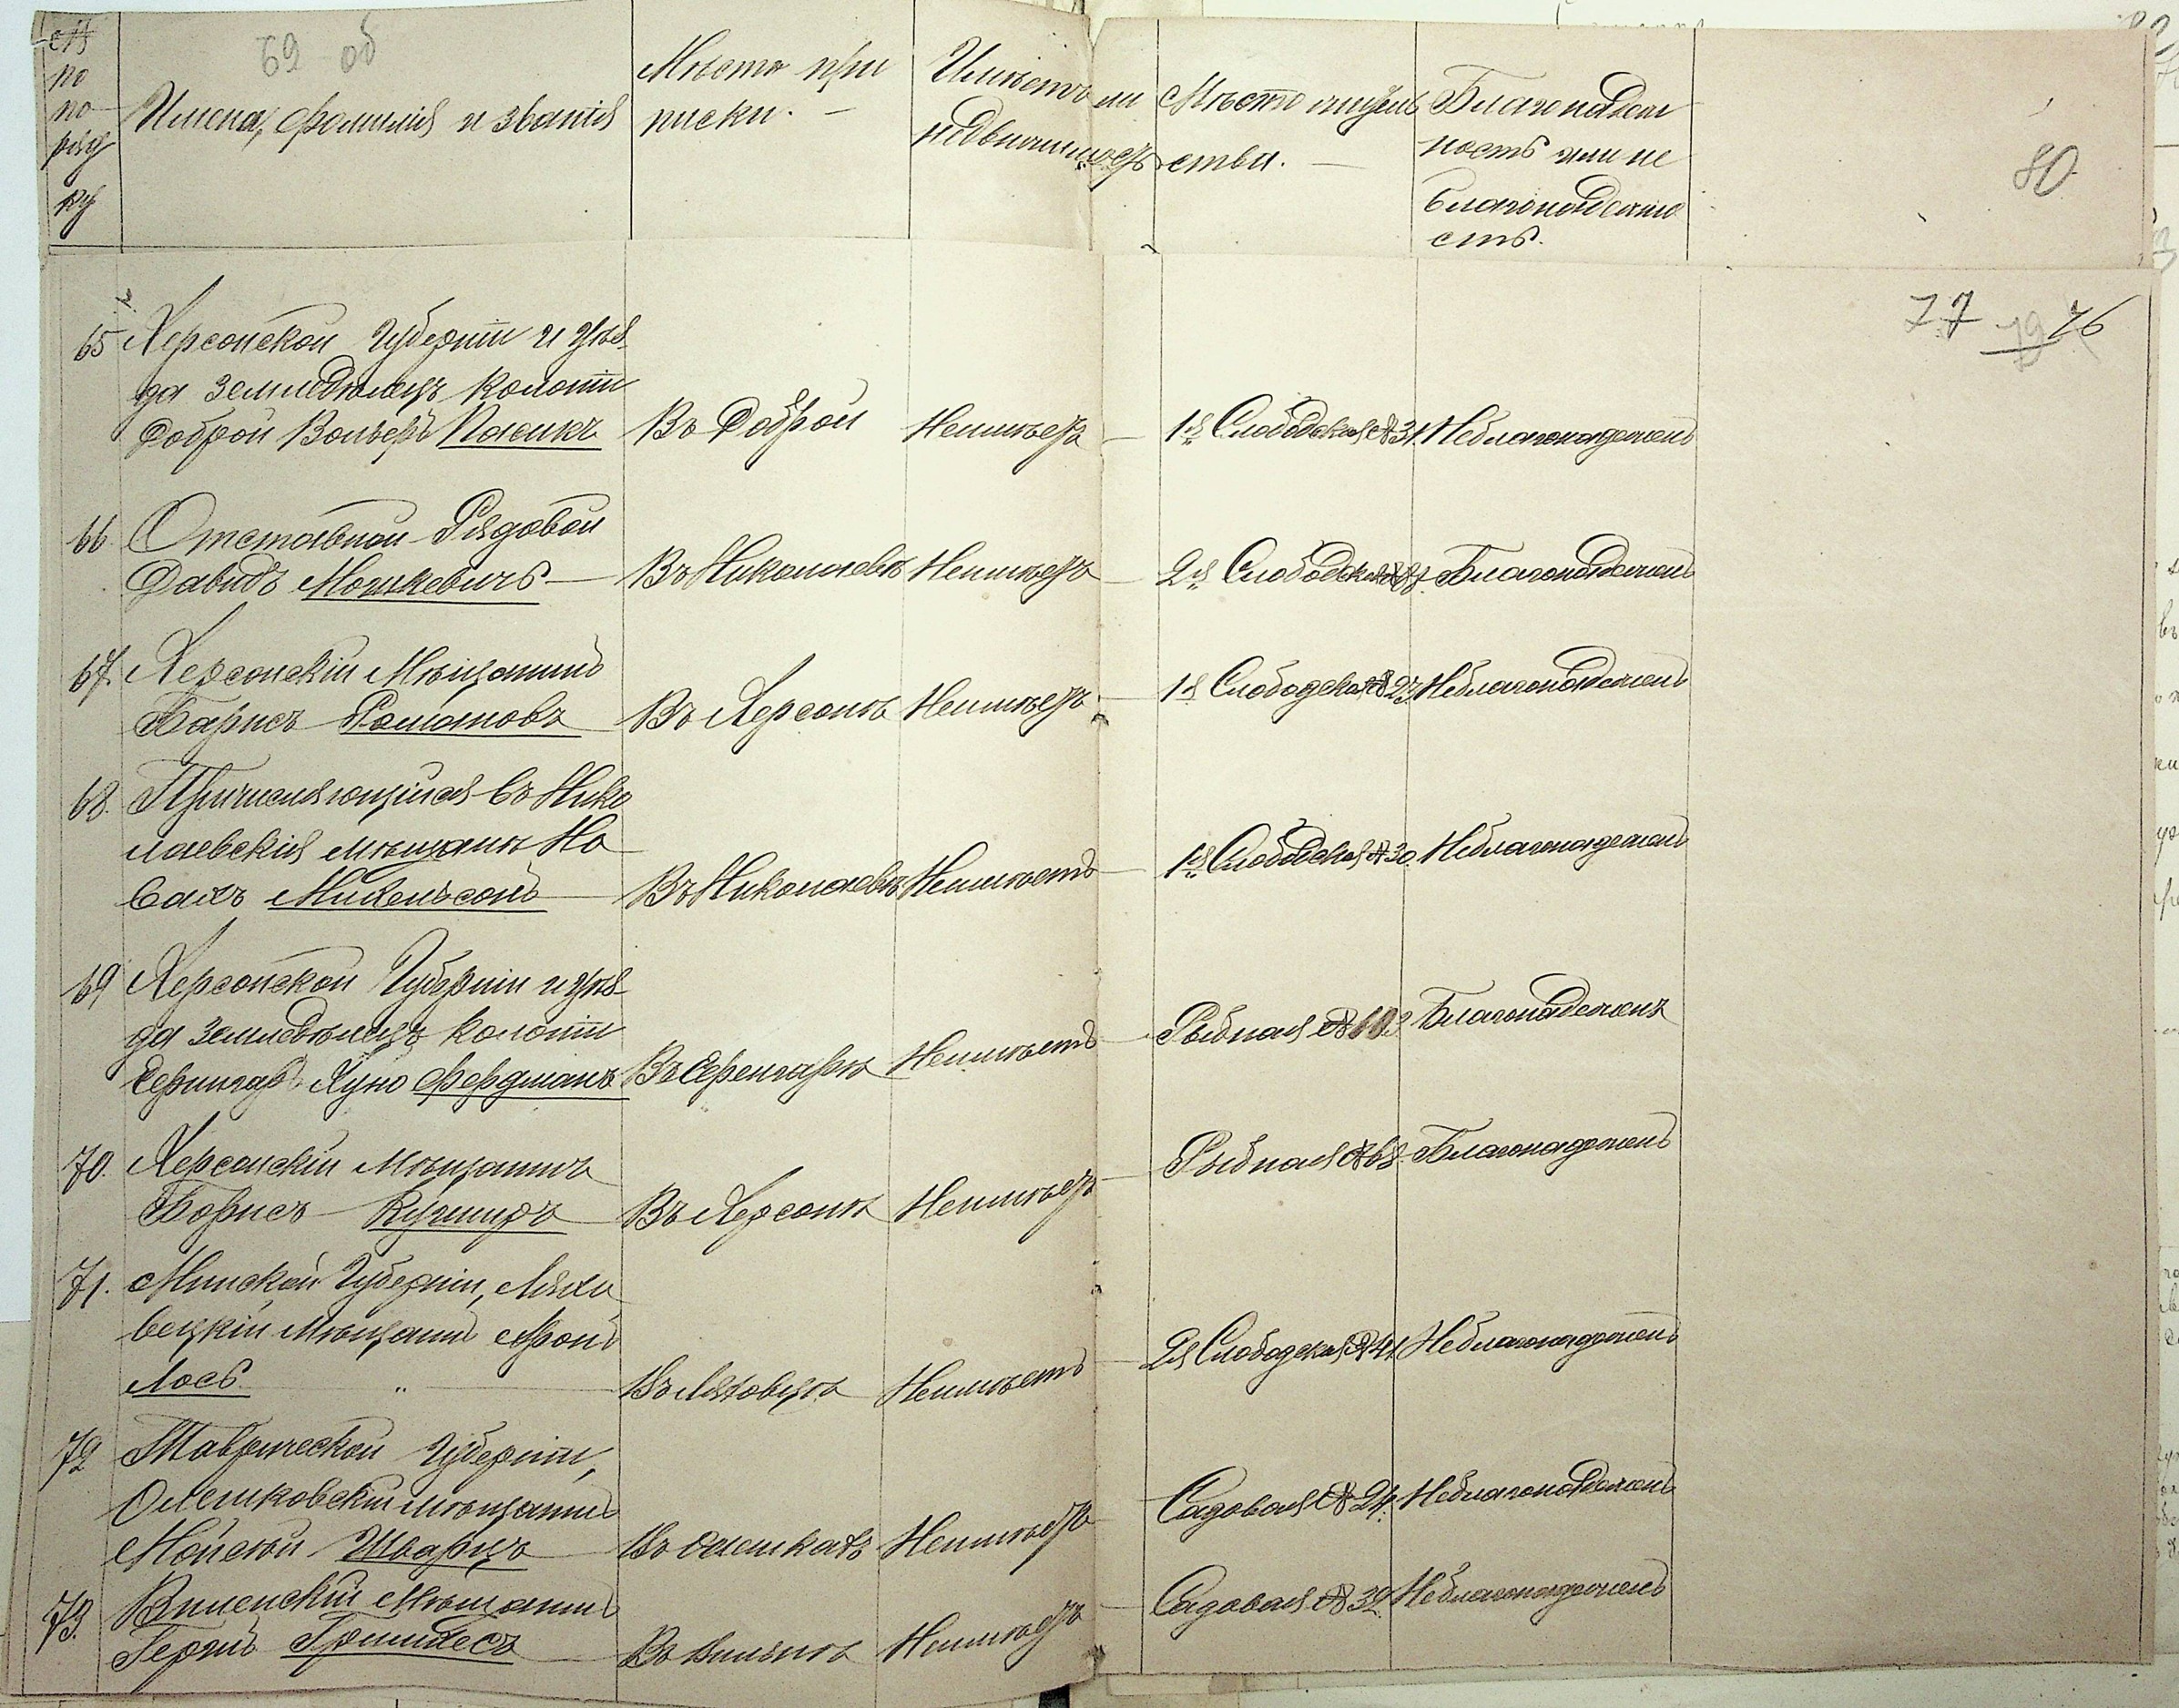 69 об
№ по по- ряд ку
Имена, фамилия и звания
Место при
писки. —
Имеетъ ли
недвижимость
Место житель
ства. —
Благонадеж
ность или не
благонадежно
сть.
80
77 19 76
65 Херсонской Губернiи и уез-
да земледелецъ колонiи
Доброй Вольфъ
Въ Доброй
Неимеетъ
1я Слободская № 31.
Неблагонадеженъ
66. Отставной Рядовой
Давидъ Мошкевичъ —
Въ Николаеве
Неимеетъ
2я Слободская
Благонадеженъ
67. Херсонскiй Мещанинъ
Борисъ Романовъ
Въ Херсоне
Неимеетъ
1я Слободская № 27.
Неблагонадеженъ
68. Причисляющiйся въ Нико
лаевскiя мещане Но
вахъ Михельсонъ
Въ Николаеве
Неимеетъ
1я Слободская № 30.
Неблагонадеженъ
69 Херсонской Губернiи и уез-
да земледелецъ колонiи
Фердманъ
Неимеетъ
Рыбная №
Благонадеженъ
70. Херсонскiй Мещанинъ
Борисъ Кушниръ
Въ Херсоне
Неимеетъ
Рыбная № 68.
Благонадеженъ
71. Минской Губернiи, Ляхо
вецкiй Мещанинъ Аронъ
Лось. "
Въ Ляховцахъ
Неимеетъ
2я Слободская № 41.
Неблагонадеженъ
72 Таврической Губернiи,
Олешковскiй мещанинъ
Мойсей Шварцъ
Въ Олешкахъ
Неимеетъ
Садовая № 24.
Неблагонадеженъ
73. Виленскiй Мещанинъ
Герцъ
Въ Вильне
Неимеетъ
Садовая № 32.
Неблагонадеженъ